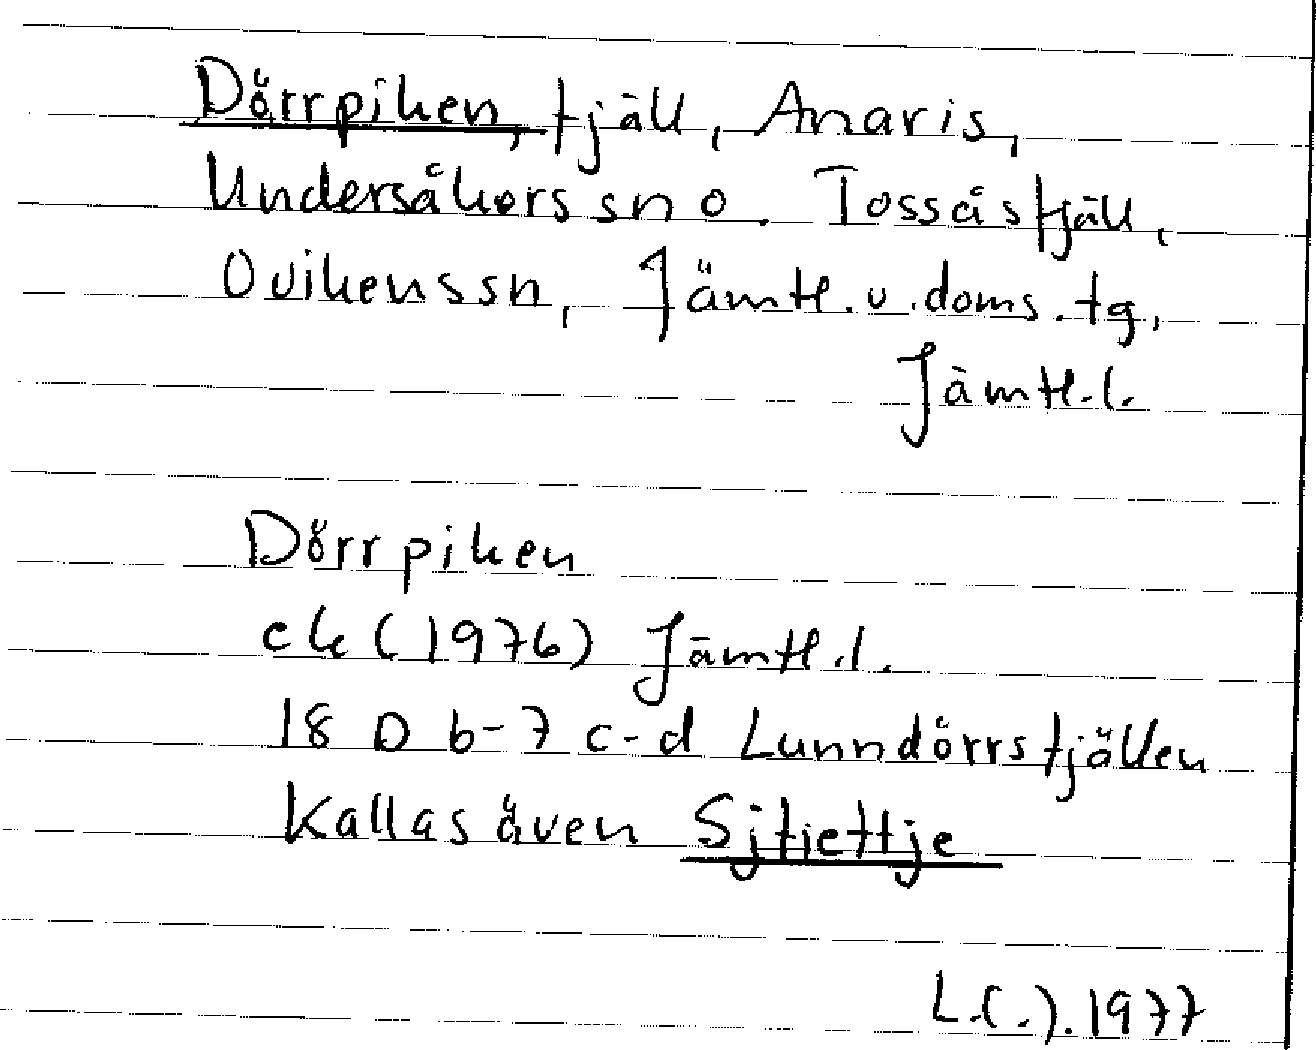 Dörrpiken, fjäll, Anaris,
Undersåkers sn o. Tossåsfjäll,
Ovikens sn, Jämtl. v. doms. tg,
Jämtl. l.
Dörrpiken
ek (1976) Jämtl. l.
18 D 6-7 c-d Lunndörrsfjällen
Kallas även Sjtjettje
L.(.). 1977